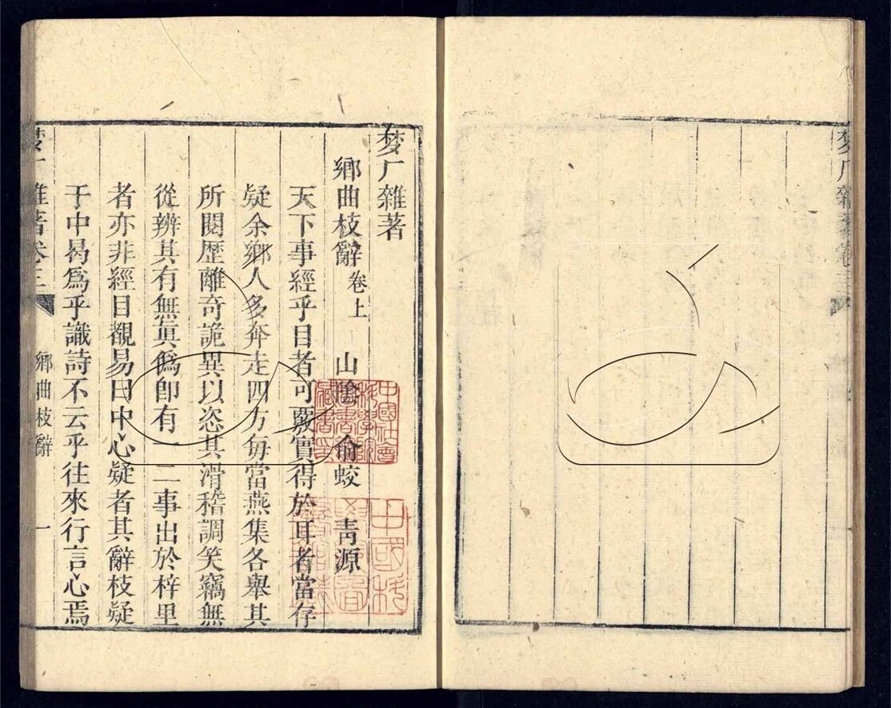 梦厂雜著
鄉曲枝辭 卷上 山陰 俞蛟 靑源
天下事經乎目者可覈實得於耳者當存
疑余鄉人多奔走四方每當燕集各舉其
所閱歷離奇詭異以恣其滑稽調笑竊無
從辨其有無眞僞卽有一二事出於梓里
者亦非經目覩易曰中心疑者其辭枝疑
于中曷爲乎識詩不云乎往來行言心焉
梦厂雜著卷三 鄉曲枝辭 一
梦厂雜著卷三